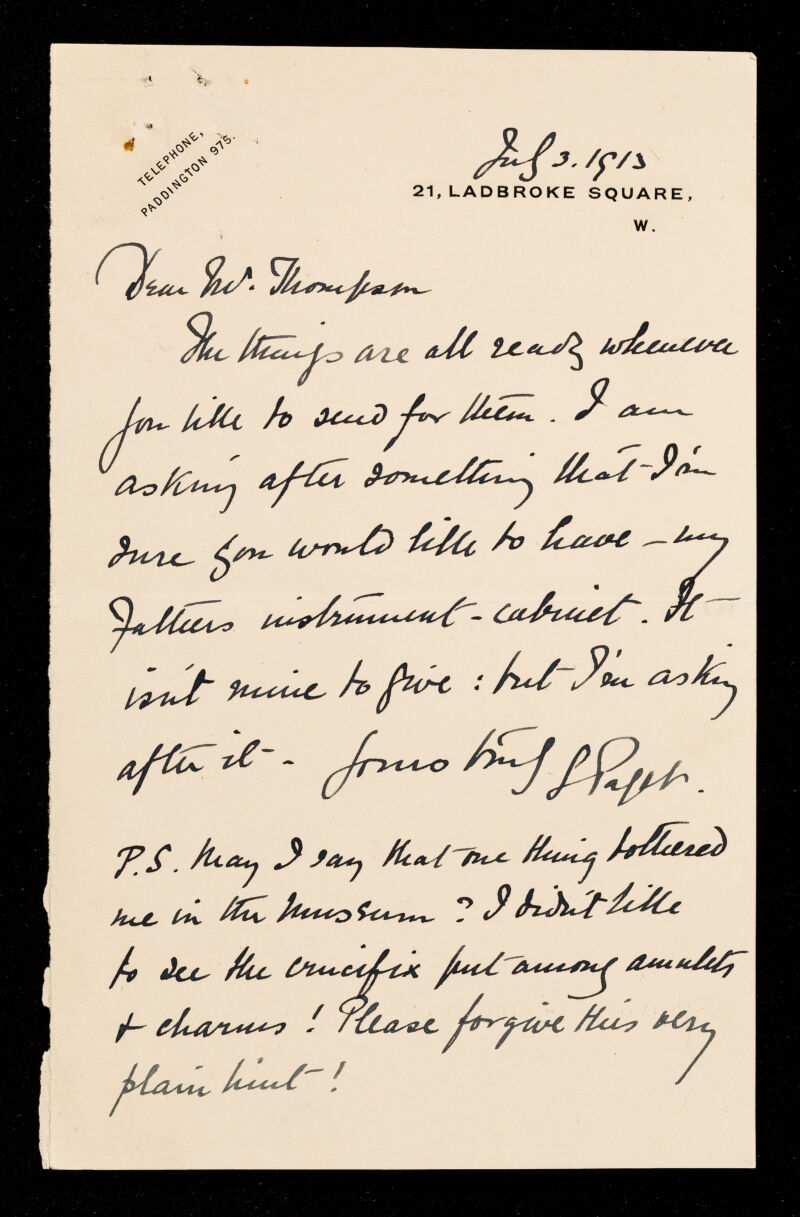 TELEPHONE,
PADDINGTON 975.
July 3. 1913
21, LADBROKE SQUARE,
W.
Dear Mr. Thompson
The things are all ready whenever
you like to send for them. I am
asking after something that I'm
sure you would like to have – my
Father's instrument-cabinet. It
isn't mine to give: but I'm asking
after it –
Yours truly S Paget.
P.S. May I say that one thing bothered
me in the Museum? I didn't like
to see the crucifix put among amulets
& charms! Please forgive this very
plain hint!